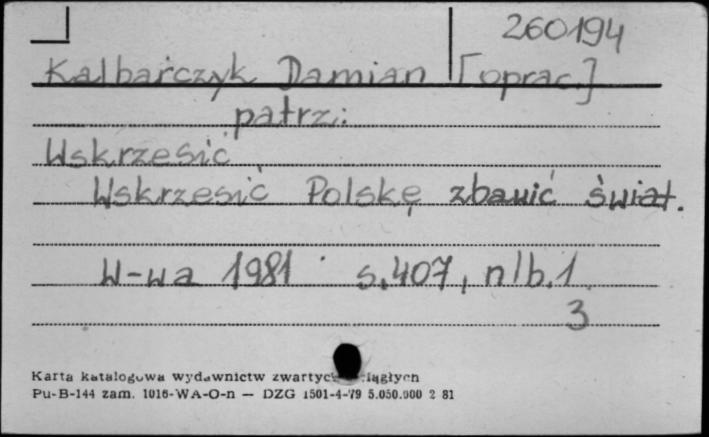 260194
Kalbarczyk Damian [oprac.]
patrz:
Wskrzesić
Wskrzesić Polskę zbawić świat.
W-wa 1981 s. 407, nlb. 1
3
Karta katalogowa wydawnictw zwartych ciągłych
Pu-B-144 zam. 1016-WA-O-n — DZG 1501-4-79 5.050.000 2 81